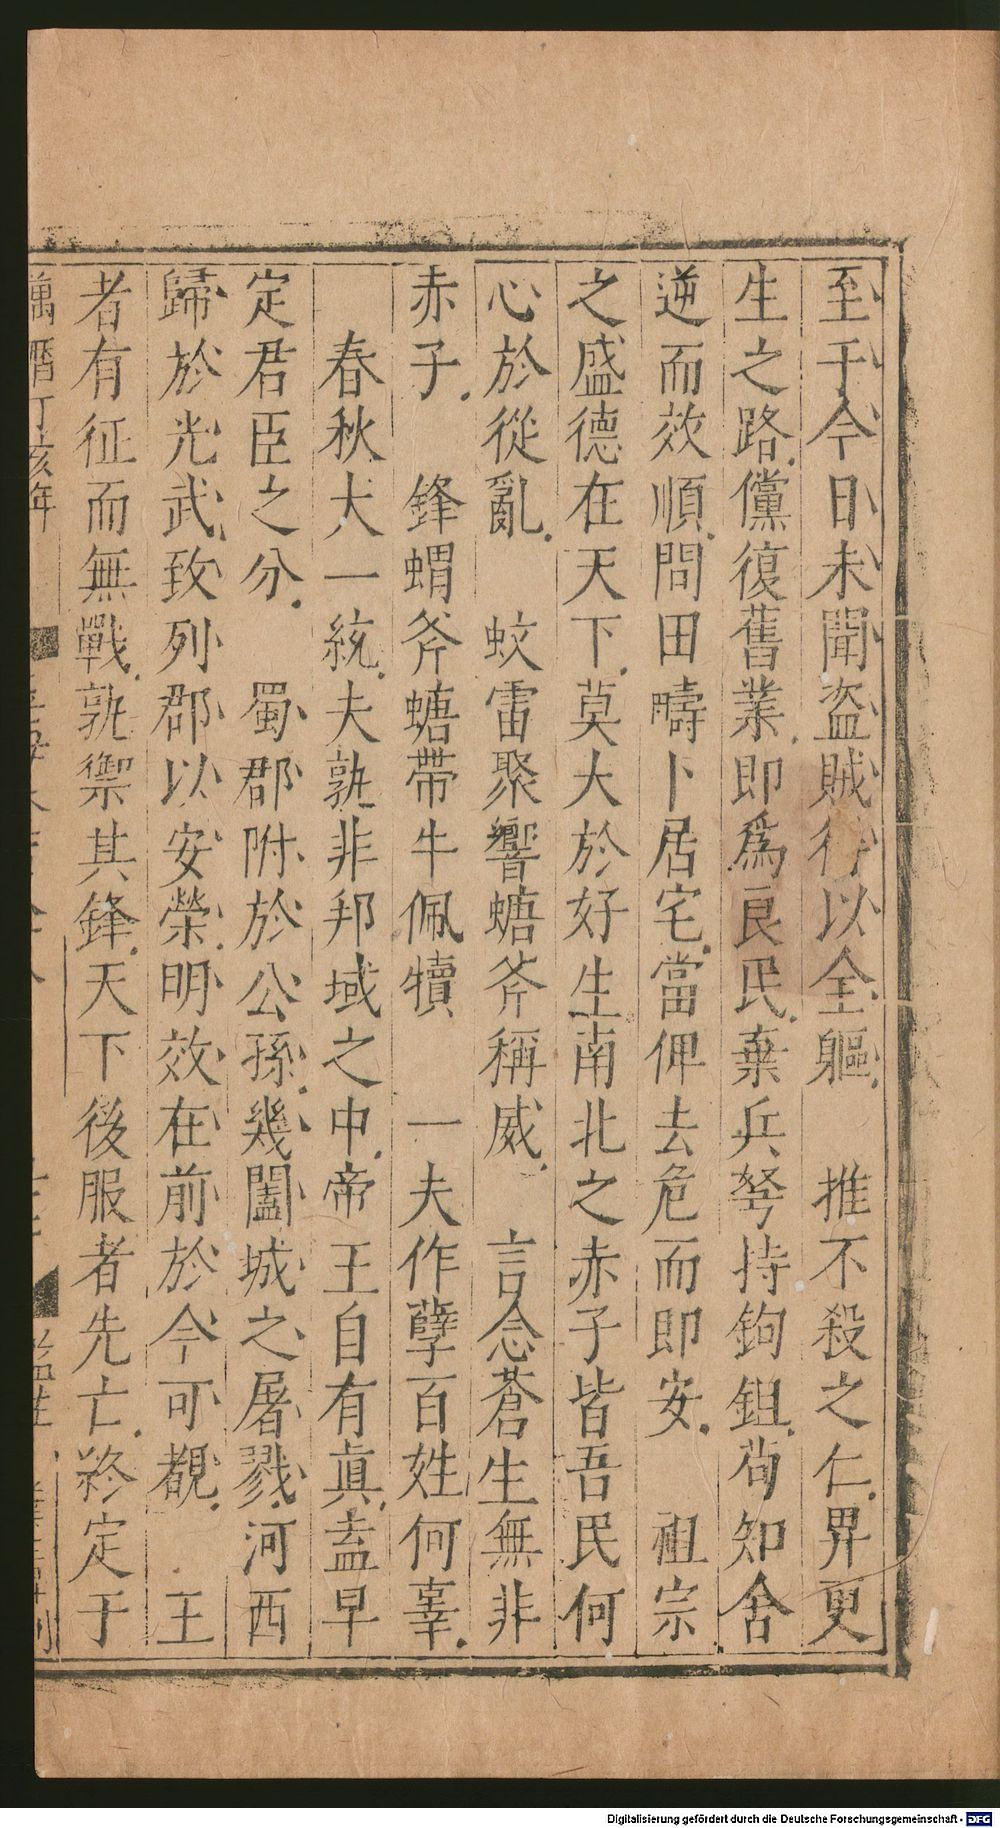 至于今日未聞盜賊得以全軀　推不殺之仁畀更
生之路儻復舊業即爲良民棄兵弩持鉤鉏茍知舍
逆而效順問田疇卜居宅當俾去危而即安　祖宗
之盛德在天下莫大於好生南北之赤子皆吾民何
心於從亂　蚊雷聚響螗斧稱威　言念蒼生無非
赤子　鋒蝟斧螗帶牛佩犢　一夫作孽百姓何辜
春秋大一統夫孰非邦域之中帝王自有眞盍早
定君臣之分　蜀郡附於公孫幾闔城之屠戮河西
歸於光武致列郡以安榮明效在前於今可覩　王
者有征而無戰孰禦其鋒天下後服者先亡終定于
萬曆丁亥年
Digitalisierung gefördert durch die Deutsche Forschungsgemeinschaft - DFG